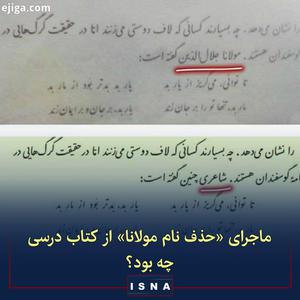 ejiga.com
را نشان می‌دهد. چه بسیارند کسانی که لاف دوستی می‌زنند امّا در حقیقت گرگ‌هایی در
گوسفندان هستند. مولانا جلال‌الدین گفته است:
تا توانی، می‌گریز از یار بد یار بد بدتر بود از مار بد
مار بد، تنها تو را بر جان زند یار بد، بر جان و بر ایمان زند
را نشان می‌دهد. چه بسیارند کسانی که لاف دوستی می‌زنند امّا در حقیقت گرگ‌هایی در
گوسفندان هستند. شاعری چنین گفته است:
تا توانی، می‌گریز از یار بد یار بد بدتر بود از مار بد
ماجرای «حذف نام مولانا» از کتاب درسی
چه بود؟
ISNA